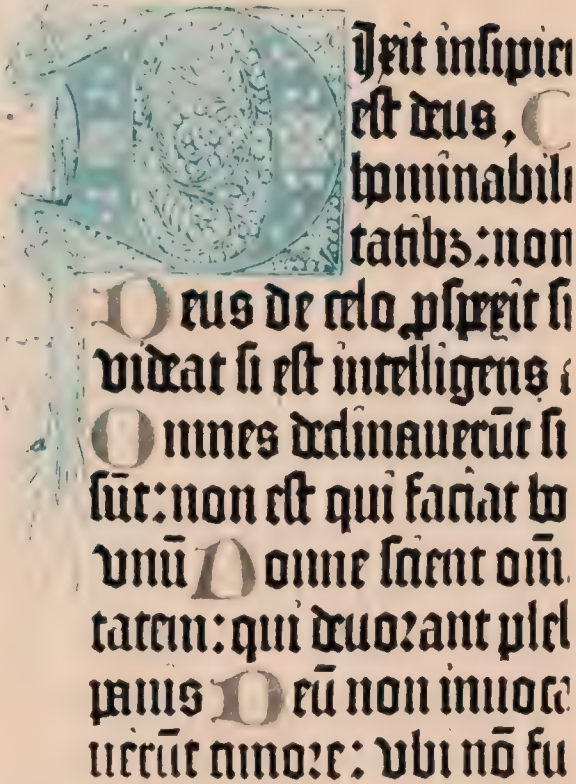 Dixit insipien
est deus, C
hominabili
tatibꝫ: non
Deus de celo ꝓspexit si
videat si est intelligens a
Omnes declinauerūt si
sūt: non est qui faciat bo
vnū Nonne scient om̄
tatem: qui deuorant pleb
panis Deū non inuoca
uerūt timore: vbi nō fu